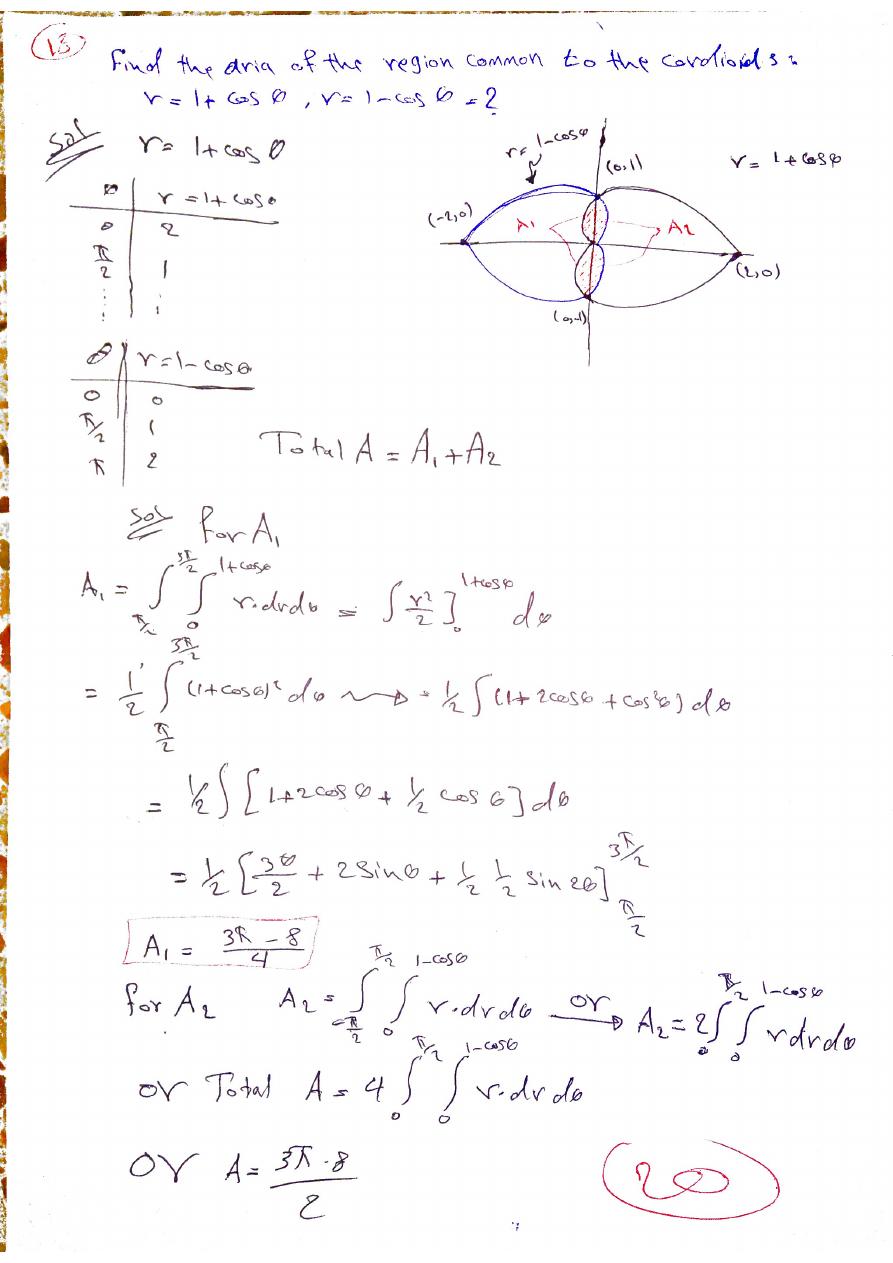 13
Find the aria of the region common to the cardioids:
r = 1 + cos θ , r = 1 - cos θ = ?
Sol r = 1 + cos θ
θ r = 1 + cos θ
0 2
π/2 1
r = 1 - cos θ
(0,1)
r = 1 + cos θ
(-2,0)
A1
A2
(2,0)
(0,-1)
θ r = 1 - cos θ
0 0
π/2 1
π 2
Total A = A1 + A2
Sol for A1
A1 = ∫_{π/2}^{3π/2} ∫_0^{1+cosθ} r.dr dθ = ∫ r²/2 ]_0^{1+cosθ} dθ
= 1/2 ∫_{π/2}^{3π/2} (1+cosθ)² dθ ⟿ = 1/2 ∫ (1 + 2cosθ + cos²θ) dθ
= 1/2 ∫ [1 + 2cos θ + 1/2 cos θ] dθ
= 1/2 [3θ/2 + 2 sin θ + 1/2 1/2 sin 2θ]_{π/2}^{3π/2}
A1 = (3π - 8)/4
for A2 A2 = ∫_{-π/2}^{π/2} ∫_0^{1-cosθ} r.dr dθ or → A2 = 2 ∫_0^{π/2} ∫_0^{1-cosθ} r dr dθ
or Total A = 4 ∫_0^{π/2} ∫_0^{1-cosθ} r.dr dθ
OR A = (3π - 8)/2
20